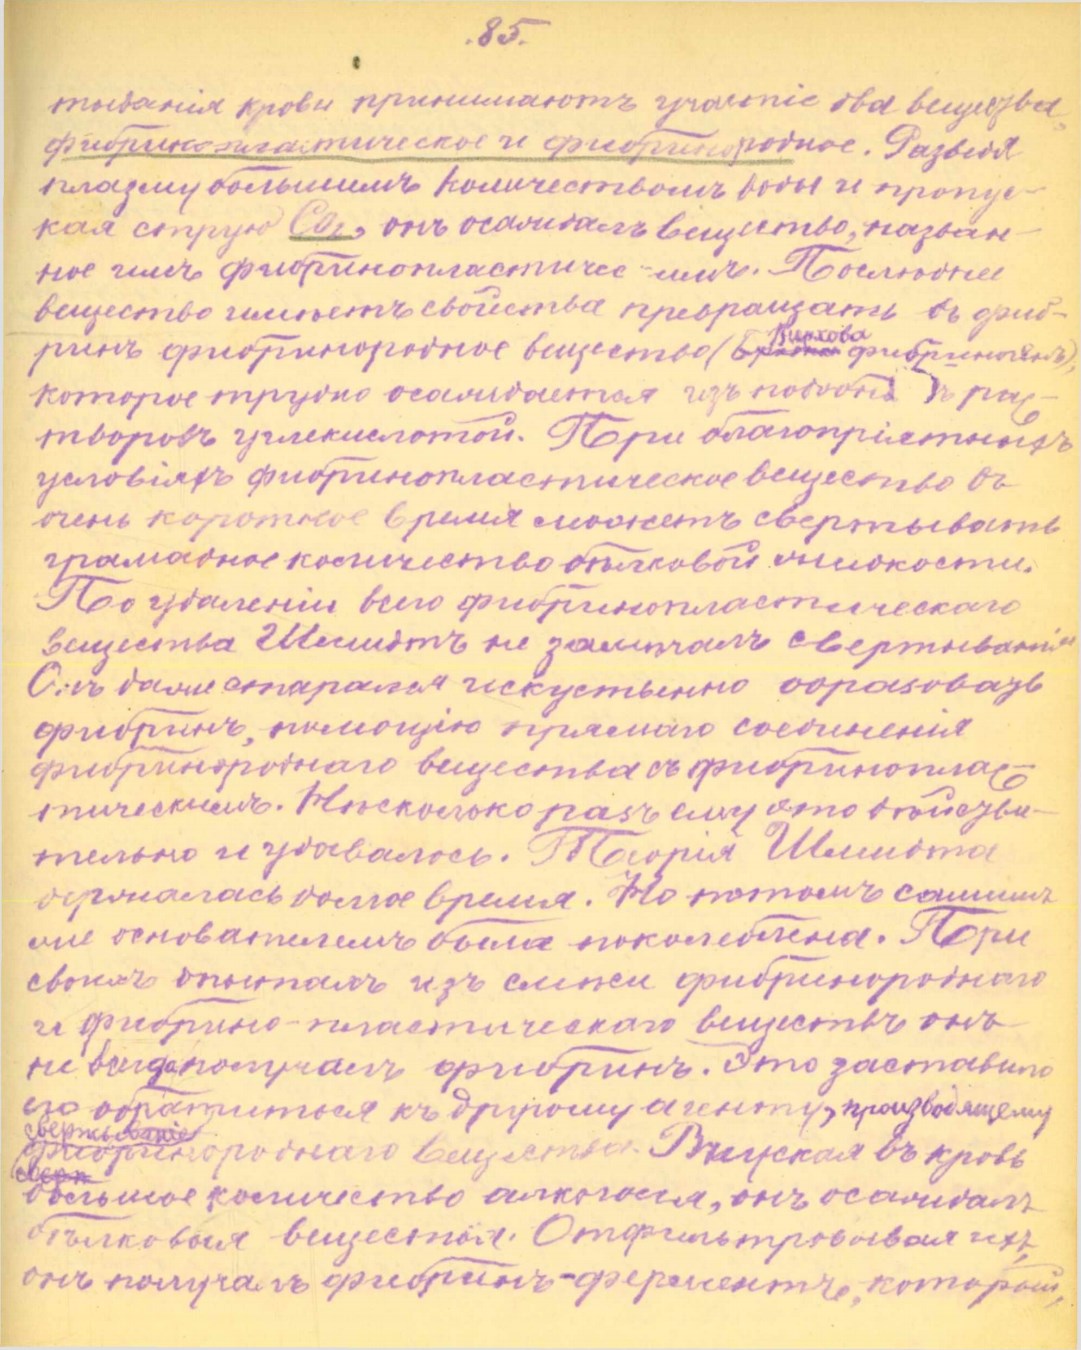 .85.
тыванія крови принимаютъ участіе два вещества,
фибрино-пластическое и фибринородное. Разведя
плазму большимъ количествомъ воды и пропус-
кая струю CO₂, онъ осаждалъ вещество, назван-
ное имъ фибринопластичес-имъ. Послѣднее
вещество имѣетъ свойства превращать въ фиб-
ринъ фибринородное вещество (Вирхова фибриногенъ),
которое трудно осаждается изъ подобныхъ рас-
творовъ углекислотой. При благопріятныхъ
условіяхъ фибринопластическое вещество въ
очень короткое время можетъ свертывать
грамадное количество бѣлковой жидкости.
По удаленіи всего фибринопластическаго
вещества Шмидтъ не замѣчалъ свертыванія
Онъ даже старался искуственно образовать
фибринъ, помощію прямаго соединенія
фибринороднаго вещества съ фибриноплас-
тическимъ. Нѣсколько разъ ему это дѣйстви-
тельно и удавалось. Теорія Шмидта
держалась долгое время. Но потомъ самимъ
же основателемъ была поколеблена. При
своихъ опытахъ изъ смѣси фибринороднаго
и фибрино-пластическаго веществъ онъ
не всегда получалъ фибринъ. Это заставило
его обратиться къ другому агенту, производящему
свертываніе
фибринороднаго вещества. Впуская въ кровь
сверт
большое количество алкоголя, онъ осаждалъ
бѣлковыя вещества. Отфильтровывая ихъ,
онъ получалъ фибринъ-ферментъ, который,